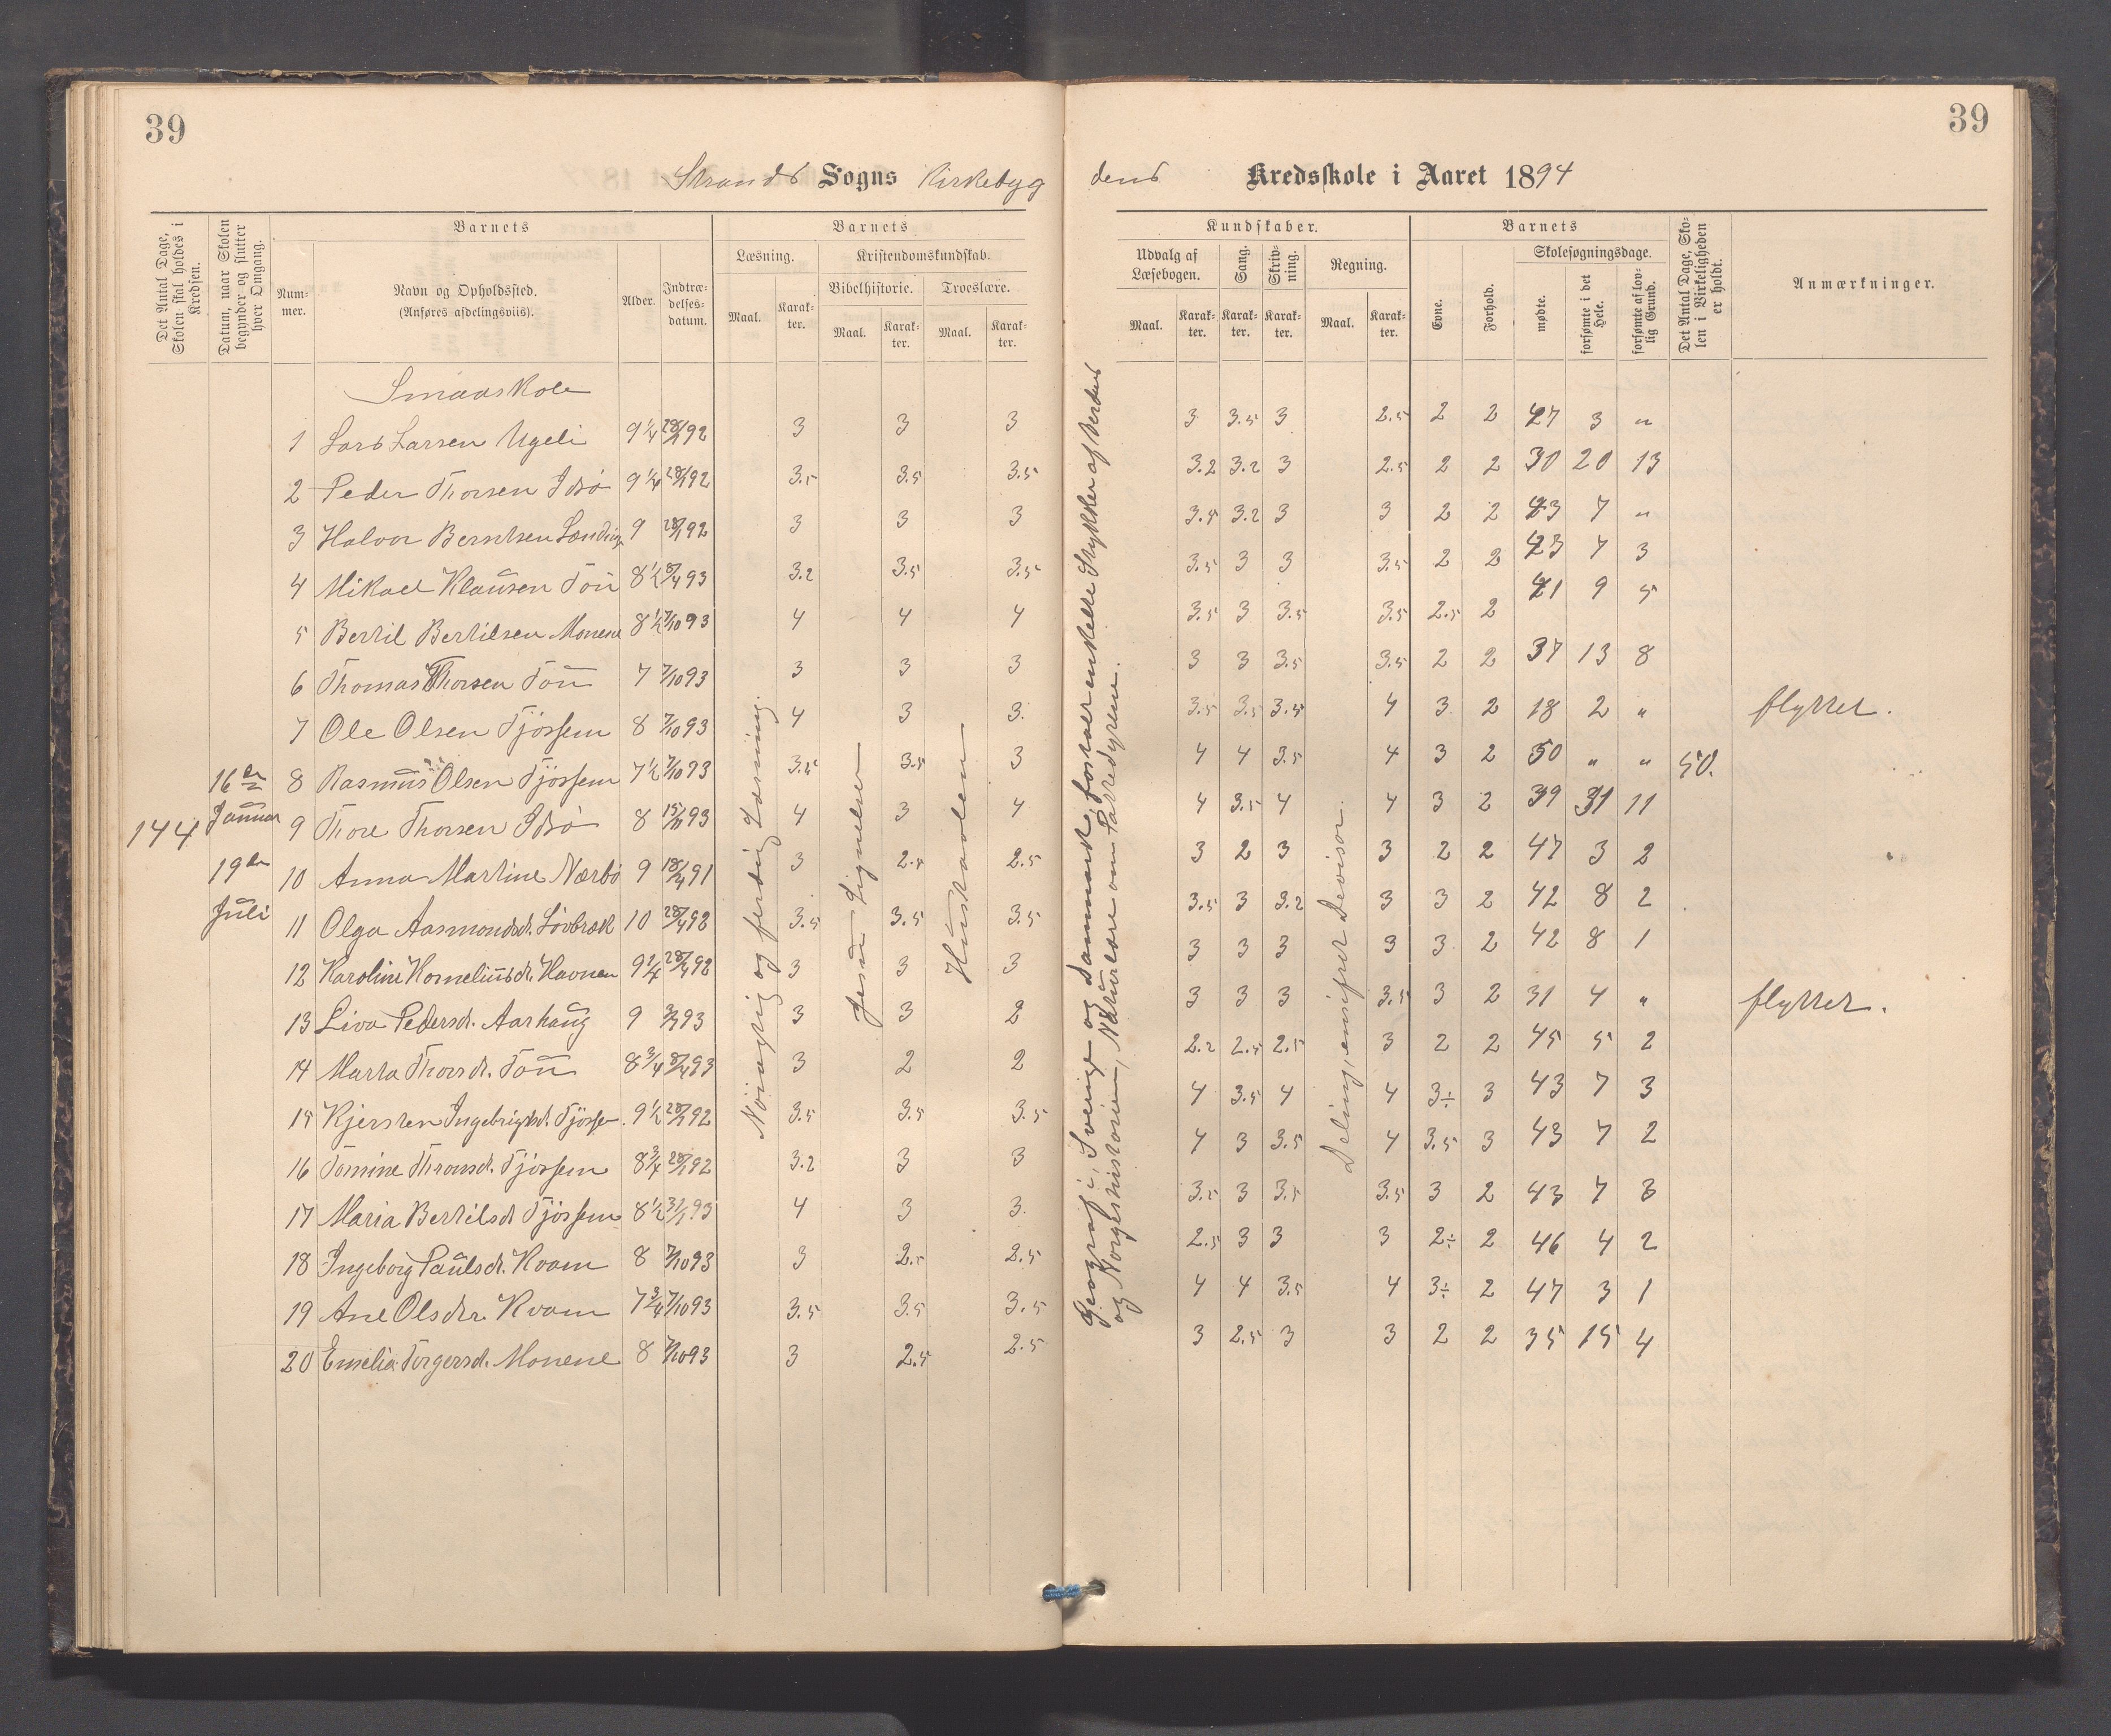 39
39
Strands Sogns Kirkebyg
dens Kredsskole i Aaret 1894
Det Antal Dage, Skolen skal holdes i Kredsen.
Datum, naar Skolen begynder og slutter hver Omgang.
Num-mer.
Barnets
Navn og Opholdssted.
(Anføres afdelingsviis).
Alder.
Indtræ-delses-datum.
Barnets
Læsning.
Kristendomskundskab.
Bibelhistorie.
Troeslære.
Maal.
Karak-ter.
Maal.
Karak-ter.
Maal.
Karak-ter.
Kundskaber.
Udvalg af Læsebogen.
Sang.
Skriv-ning.
Regning.
Maal.
Karak-ter.
Karak-ter.
Karak-ter.
Maal.
Karak-ter.
Barnets
Evne.
Forhold.
Skolesøgningsdage.
mødte.
forsømte i det Hele.
forsømte af lov-lig Grund.
Det Antal Dage, Sko-len i Virkeligheden er holdt.
Anmærkninger.
Smaaskole
144
16de Januar
19de Juli
Nöiagtig og ferdig Læsning.
Jesu Lignelser
Hustavlen
Geografi: Sverige og Danmark, forstaar enkelte Stykker af Verdens
og Norgeshistorien, Naturlære om Pattedyrene.
Deling, ensifret Devisor.
1 Lars Larsen Ugeli 9 1/4 92 3 3 3 3 3.5 3 2.5 2 2 47 3 "
2 Peder Thorsen Idsö 9 1/4 92 3.5 3.5 3.5 3.2 3.2 3 2.5 2 2 30 20 13
3 Halvor Berntsen 9 92 3 3 3 3.5 3.2 3 3 2 2 43 7 "
4 Mikael Klausen Tou 8 1/2 93 3.2 3.5 3.5 3.5 3 3 3.5 2 2 43 7 3
5 Bertil Bertilsen Monene 8 1/2 7/10 93 4 4 4 3.5 3 3.5 3.5 2.5 2 41 9 5
6 Thomas Thorsen Tou 7 7/10 93 3 3 3 3 3 3.5 3.5 2 2 37 13 8
7 Ole Olsen Tjössem 8 7/10 93 4 3 3. 3.5 3.5 3.5 4 3 2 18 2 " flyttet.
8 Rasmus Olsen Tjössem 7 1/2 7/10 93 3.5 3.5 3 4 4 3.5 4 3 2 50 " " 50.
9 Thore Thorsen Idsö 8 93 4 3 4 4 3.5 4 4 3 2 39 31 11
10 Anna Martine Nærbö 9 91 3 2.5 2.5 3 2 3 3 2 2 47 3 2
11 Olga Aasmondsdt. Lövbræk 10 92 3.5 3.5 3.5 3.5 3 3.2 3 3 2 42 8 2
12 Karoline Korneliusdt. Havnen 9 1/4 92 3 3 3 3 3 3 3 3 2 42 8 1
13 Liva Pedersdt. Aarhaug 9 93 3 3 2 3 3 3 3.5 3 2 31 4 " flyttet.
14 Marta Thorsdt. Tou 8 3/4 93 3 2 2 2.2 2.5 2.5 3 2 2 45 5 2
15 Kjersten Ingebrigtsdt. Tjösse. 9 1/2 92 3.5 3.5 3.5 4 3.5 4 4 3÷ 3 43 7 3
16 Tomine Thronsdt. Tjössem 8 3/4 92 3.2 3 3 4 3 3.5 4 3.5 3 43 7 2
17 Maria Bertilsdt Tjössem 8 1/2 93 4 3 3. 3.5 3 3.5 3.5 3 2 43 7 3
18 Ingeborg Paulsdt. Kvam 8 7/10 93 3 2.5 2.5 2.5 3 3 3 2÷ 2 46 4 2
19 Ane Olsdtr. Kvam 7 3/4 7/10 93 3.5 3.5 3.5 4 4 3.5 4 3÷ 2 47 3 1
20 Emelia Torgersdt. Monene 8 7/10 93 3 2.5 2.5 3 2.5 3 3 2 2 35 15 4